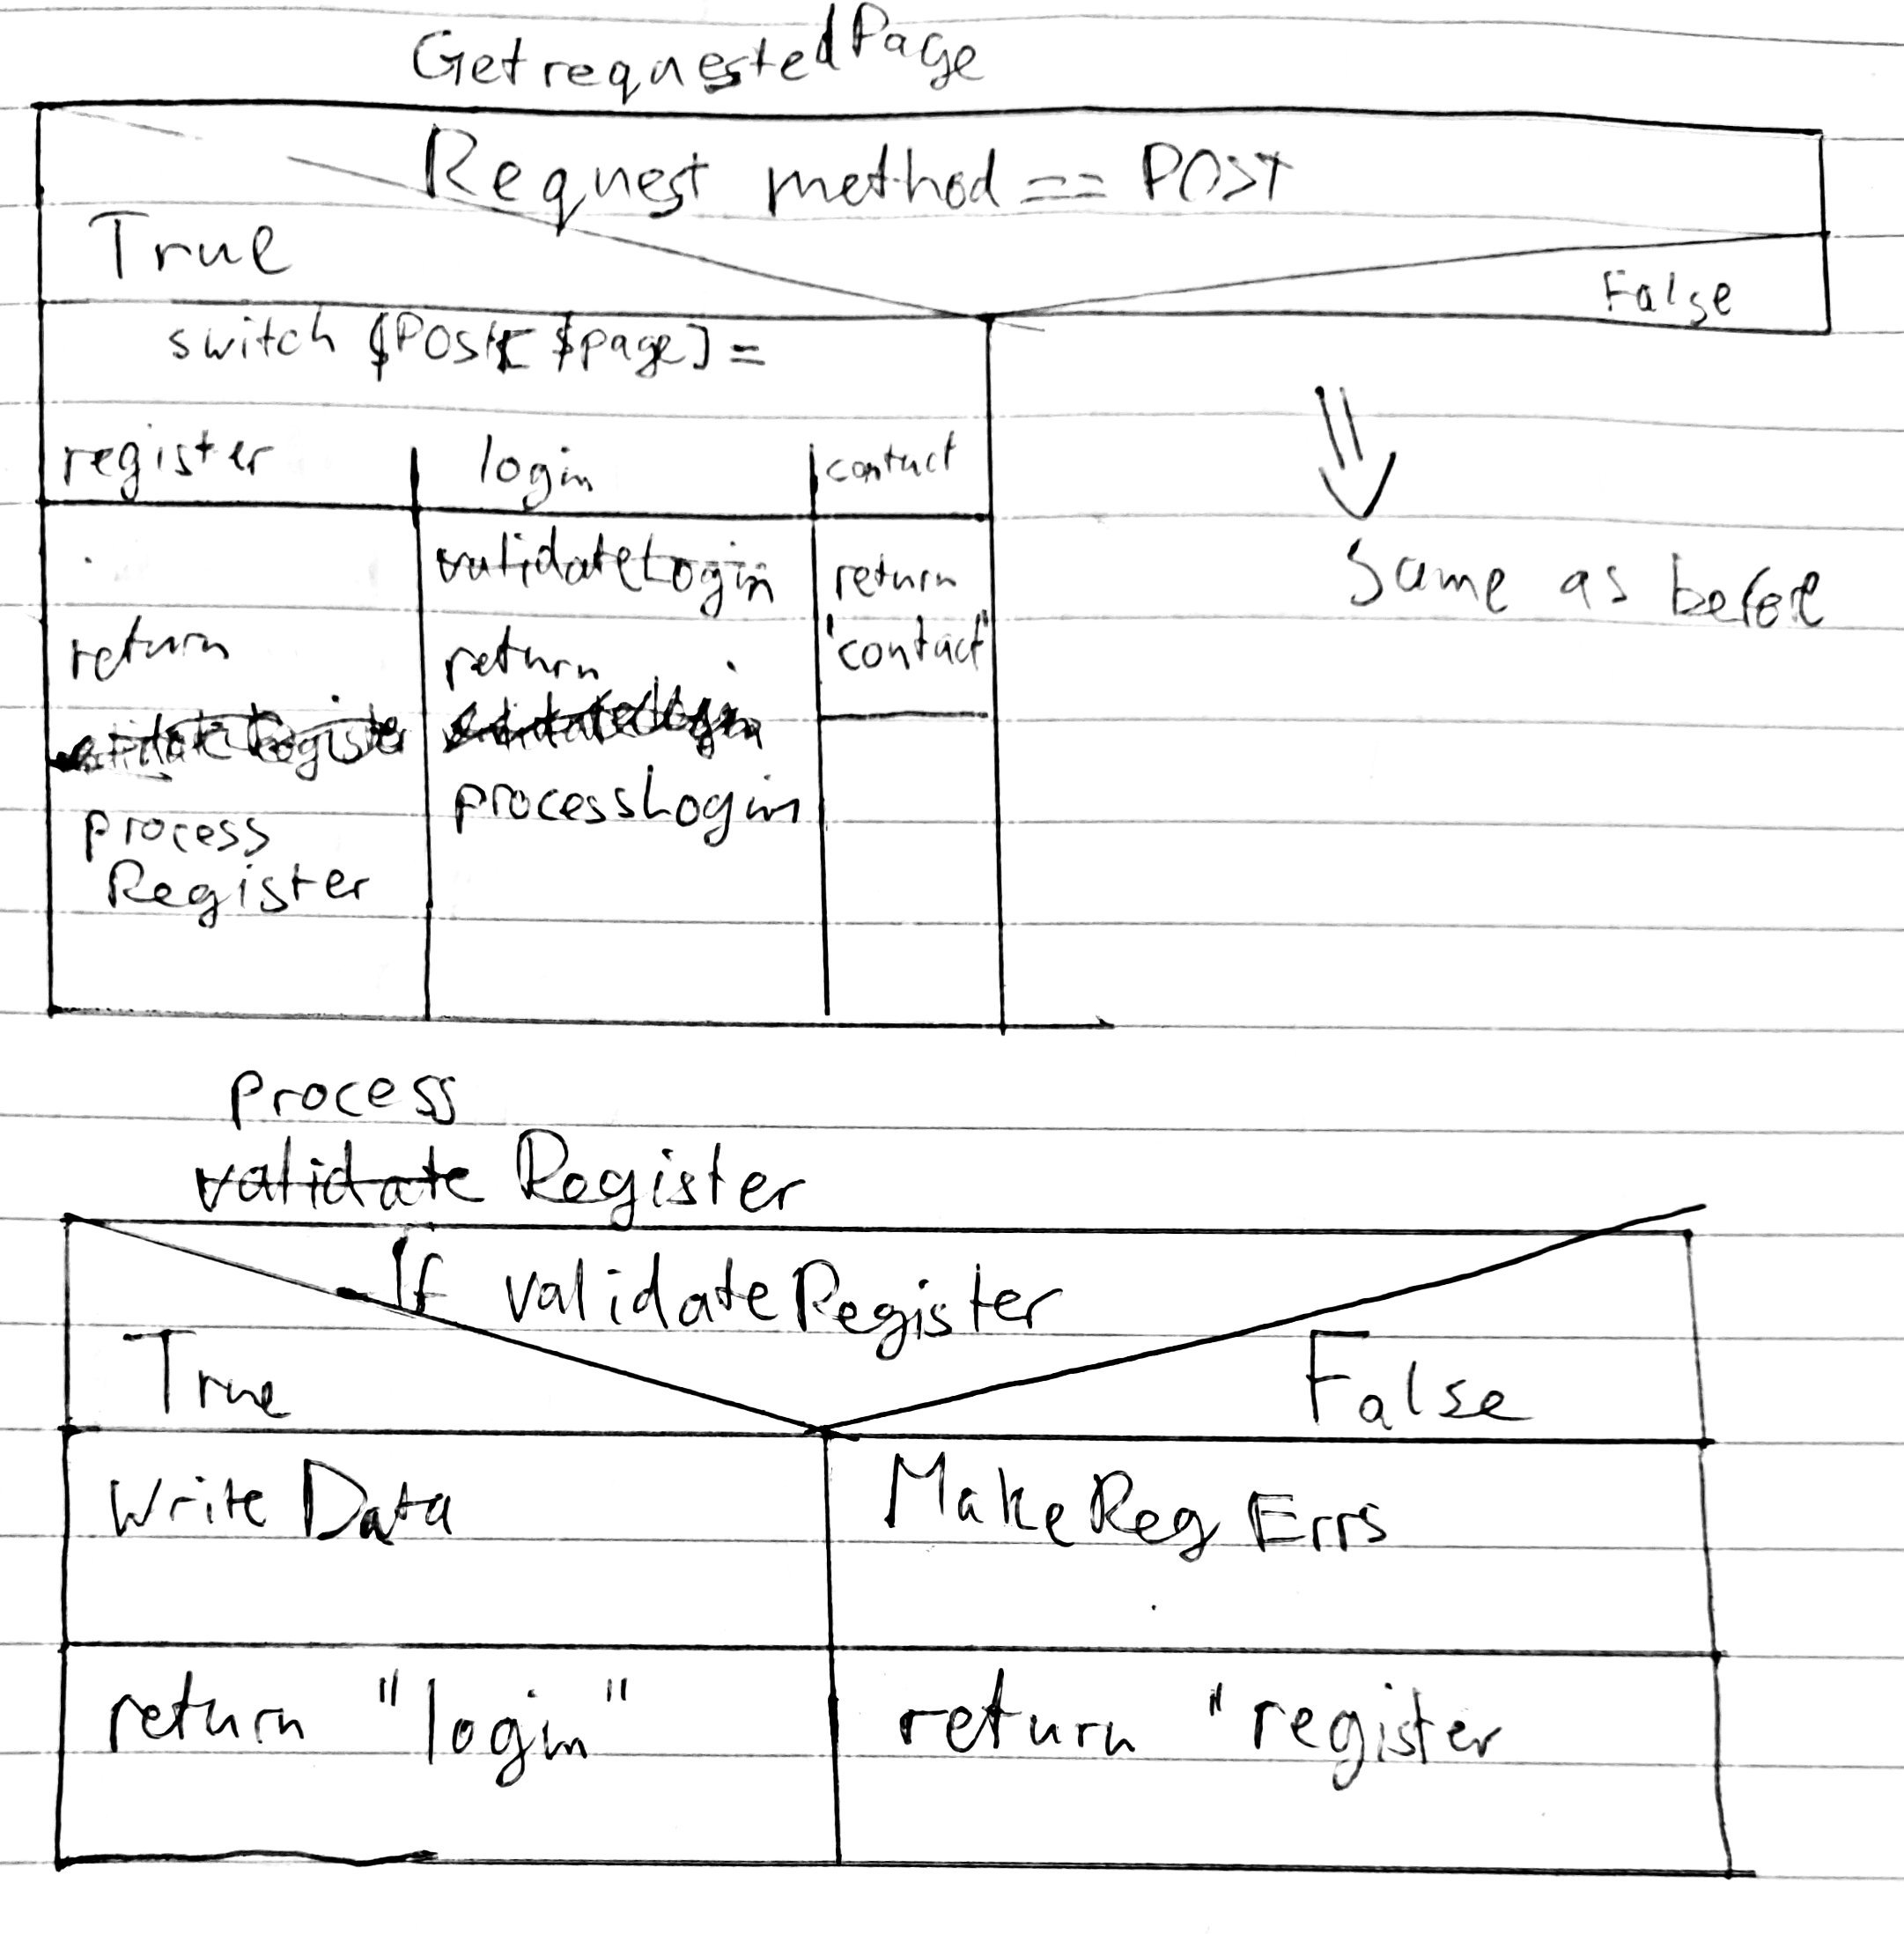 GetrequestedPage
Request method == POST
True
False
switch $POST[$page] =
register login contact
validateLogin
return
'contact'
Same as before
return
return
validateRegister
validateLogin
process
Register
processLogin
process
validate Register
If validateRegister
True
False
Write Data
MakeReg Errs
return "login"
return "register